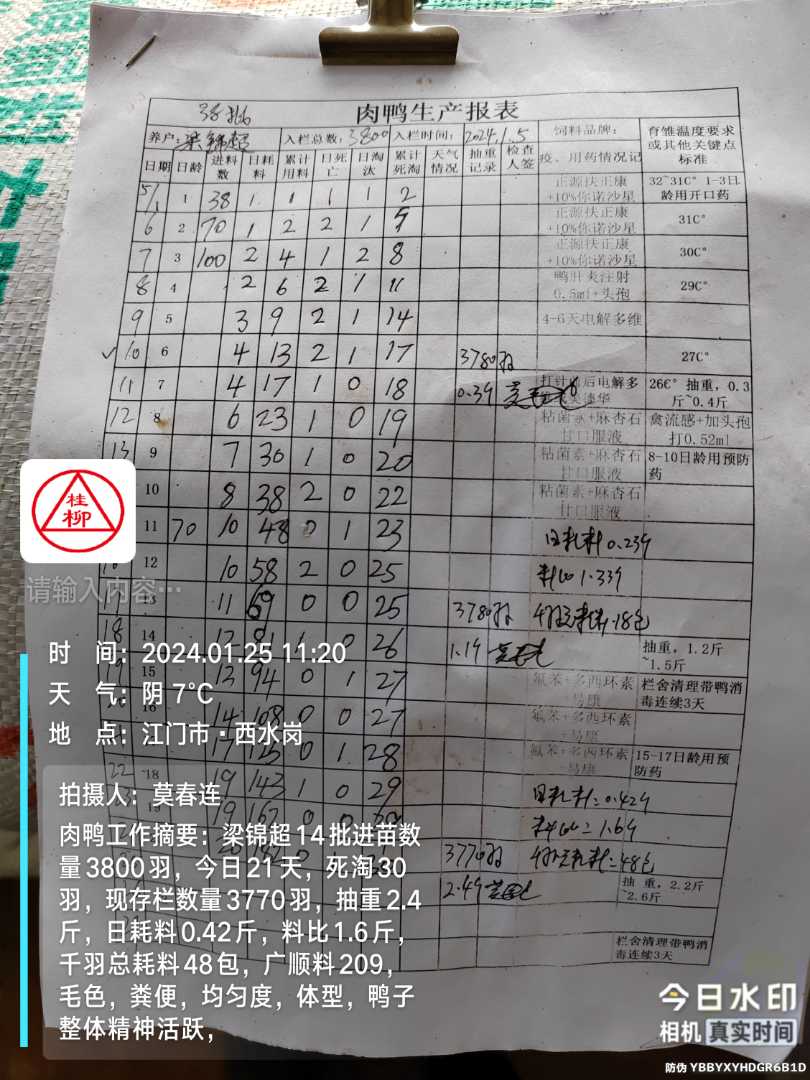 38批
肉鸭生产报表
养户:梁锦超 入栏总数:3800 入栏时间:2024.1.5 饲料品牌: 育雏温度要求或其他关键点标准
日期 日龄 进料数 日耗料 累计用料 日死亡 日淘汰 累计死淘 天气情况 抽重记录 检查人签 疫、用药情况记
5/1 1 38 1 1 1 1 2 正源扶正康+10%你诺沙星 32~31C° 1-3日龄用开口药
6 2 70 1 2 2 1 5 正源扶正康+10%你诺沙星 31C°
7 3 100 2 4 1 2 8 正源扶正康+10%你诺沙星 30C°
8 4 2 6 2 1 11 鸭肝炎注射0.5ml+头孢 29C°
9 5 3 9 2 1 14 4-6天电解多维
10 6 4 13 2 1 17 3780羽 27C°
11 7 4 17 1 0 18 0.39 打针 后电解多 26C° 抽重,0.3斤~0.4斤
12 8 6 23 1 0 19 粘菌素+麻杏石甘口服液 禽流感+加头孢打0.52ml
13 9 7 30 1 0 20 粘菌素+麻杏石甘口服液 8-10日龄用预防药
10 8 38 2 0 22 粘菌素+麻杏石甘口服液
11 70 10 48 0 1 23 日耗料0.239
12 10 58 2 0 25 料比1.339
13 11 69 0 0 25 3780羽 18包
18 14 12 81 1 0 26 1.19 抽重,1.2斤~1.5斤
15 13 94 0 1 27 氟苯+多西环素+易康 栏舍清理带鸭消毒连续3天
14 108 0 0 27 氟苯+多西环素+易康
17 125 0 1 28 氟苯+多西环素+易康 15-17日龄用预防药
22 18 19 143 1 0 29 日耗料:0.429
19 162 0 0 料比=1.69
3770羽 =48包
2.49 抽重,2.2斤~2.6斤
栏舍清理带鸭消毒连续3天
桂柳
请输入内容…
时 间:2024.01.25 11:20
天 气:阴 7℃
地 点:江门市·西水岗
拍摄人:莫春连
肉鸭工作摘要:梁锦超14批进苗数
量3800羽,今日21天,死淘30
羽,现存栏数量3770羽,抽重2.4
斤,日耗料0.42斤,料比1.6斤,
千羽总耗料48包,广顺料209,
毛色,粪便,均匀度,体型,鸭子
整体精神活跃,
今日水印
相机 真实时间
防伪 YBBYXYHDGR6B1D